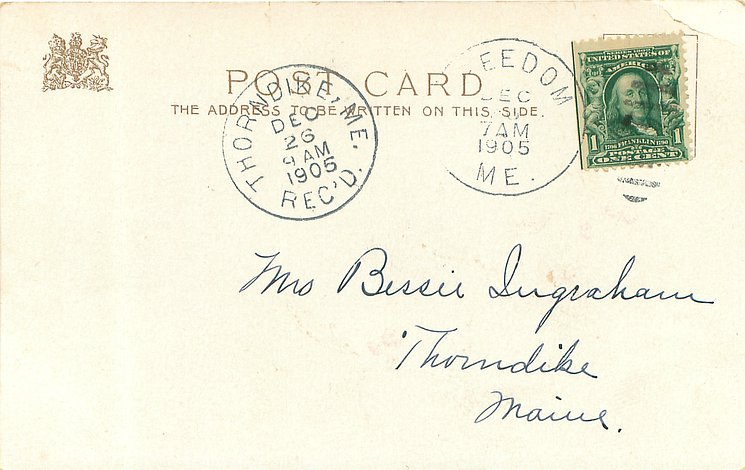 POST CARD
THE ADDRESS TO BE WRITTEN ON THIS SIDE.
THORNDIKE, ME.
DEC
26
9 AM
1905
REC'D.
FREEDOM
DEC
7 AM
1905
ME.
UNITED STATES OF
AMERICA
1 1
1706 FRANKLIN 1790
POSTAGE
ONE CENT
Mrs Bessie Ingraham
Thorndike
Maine.